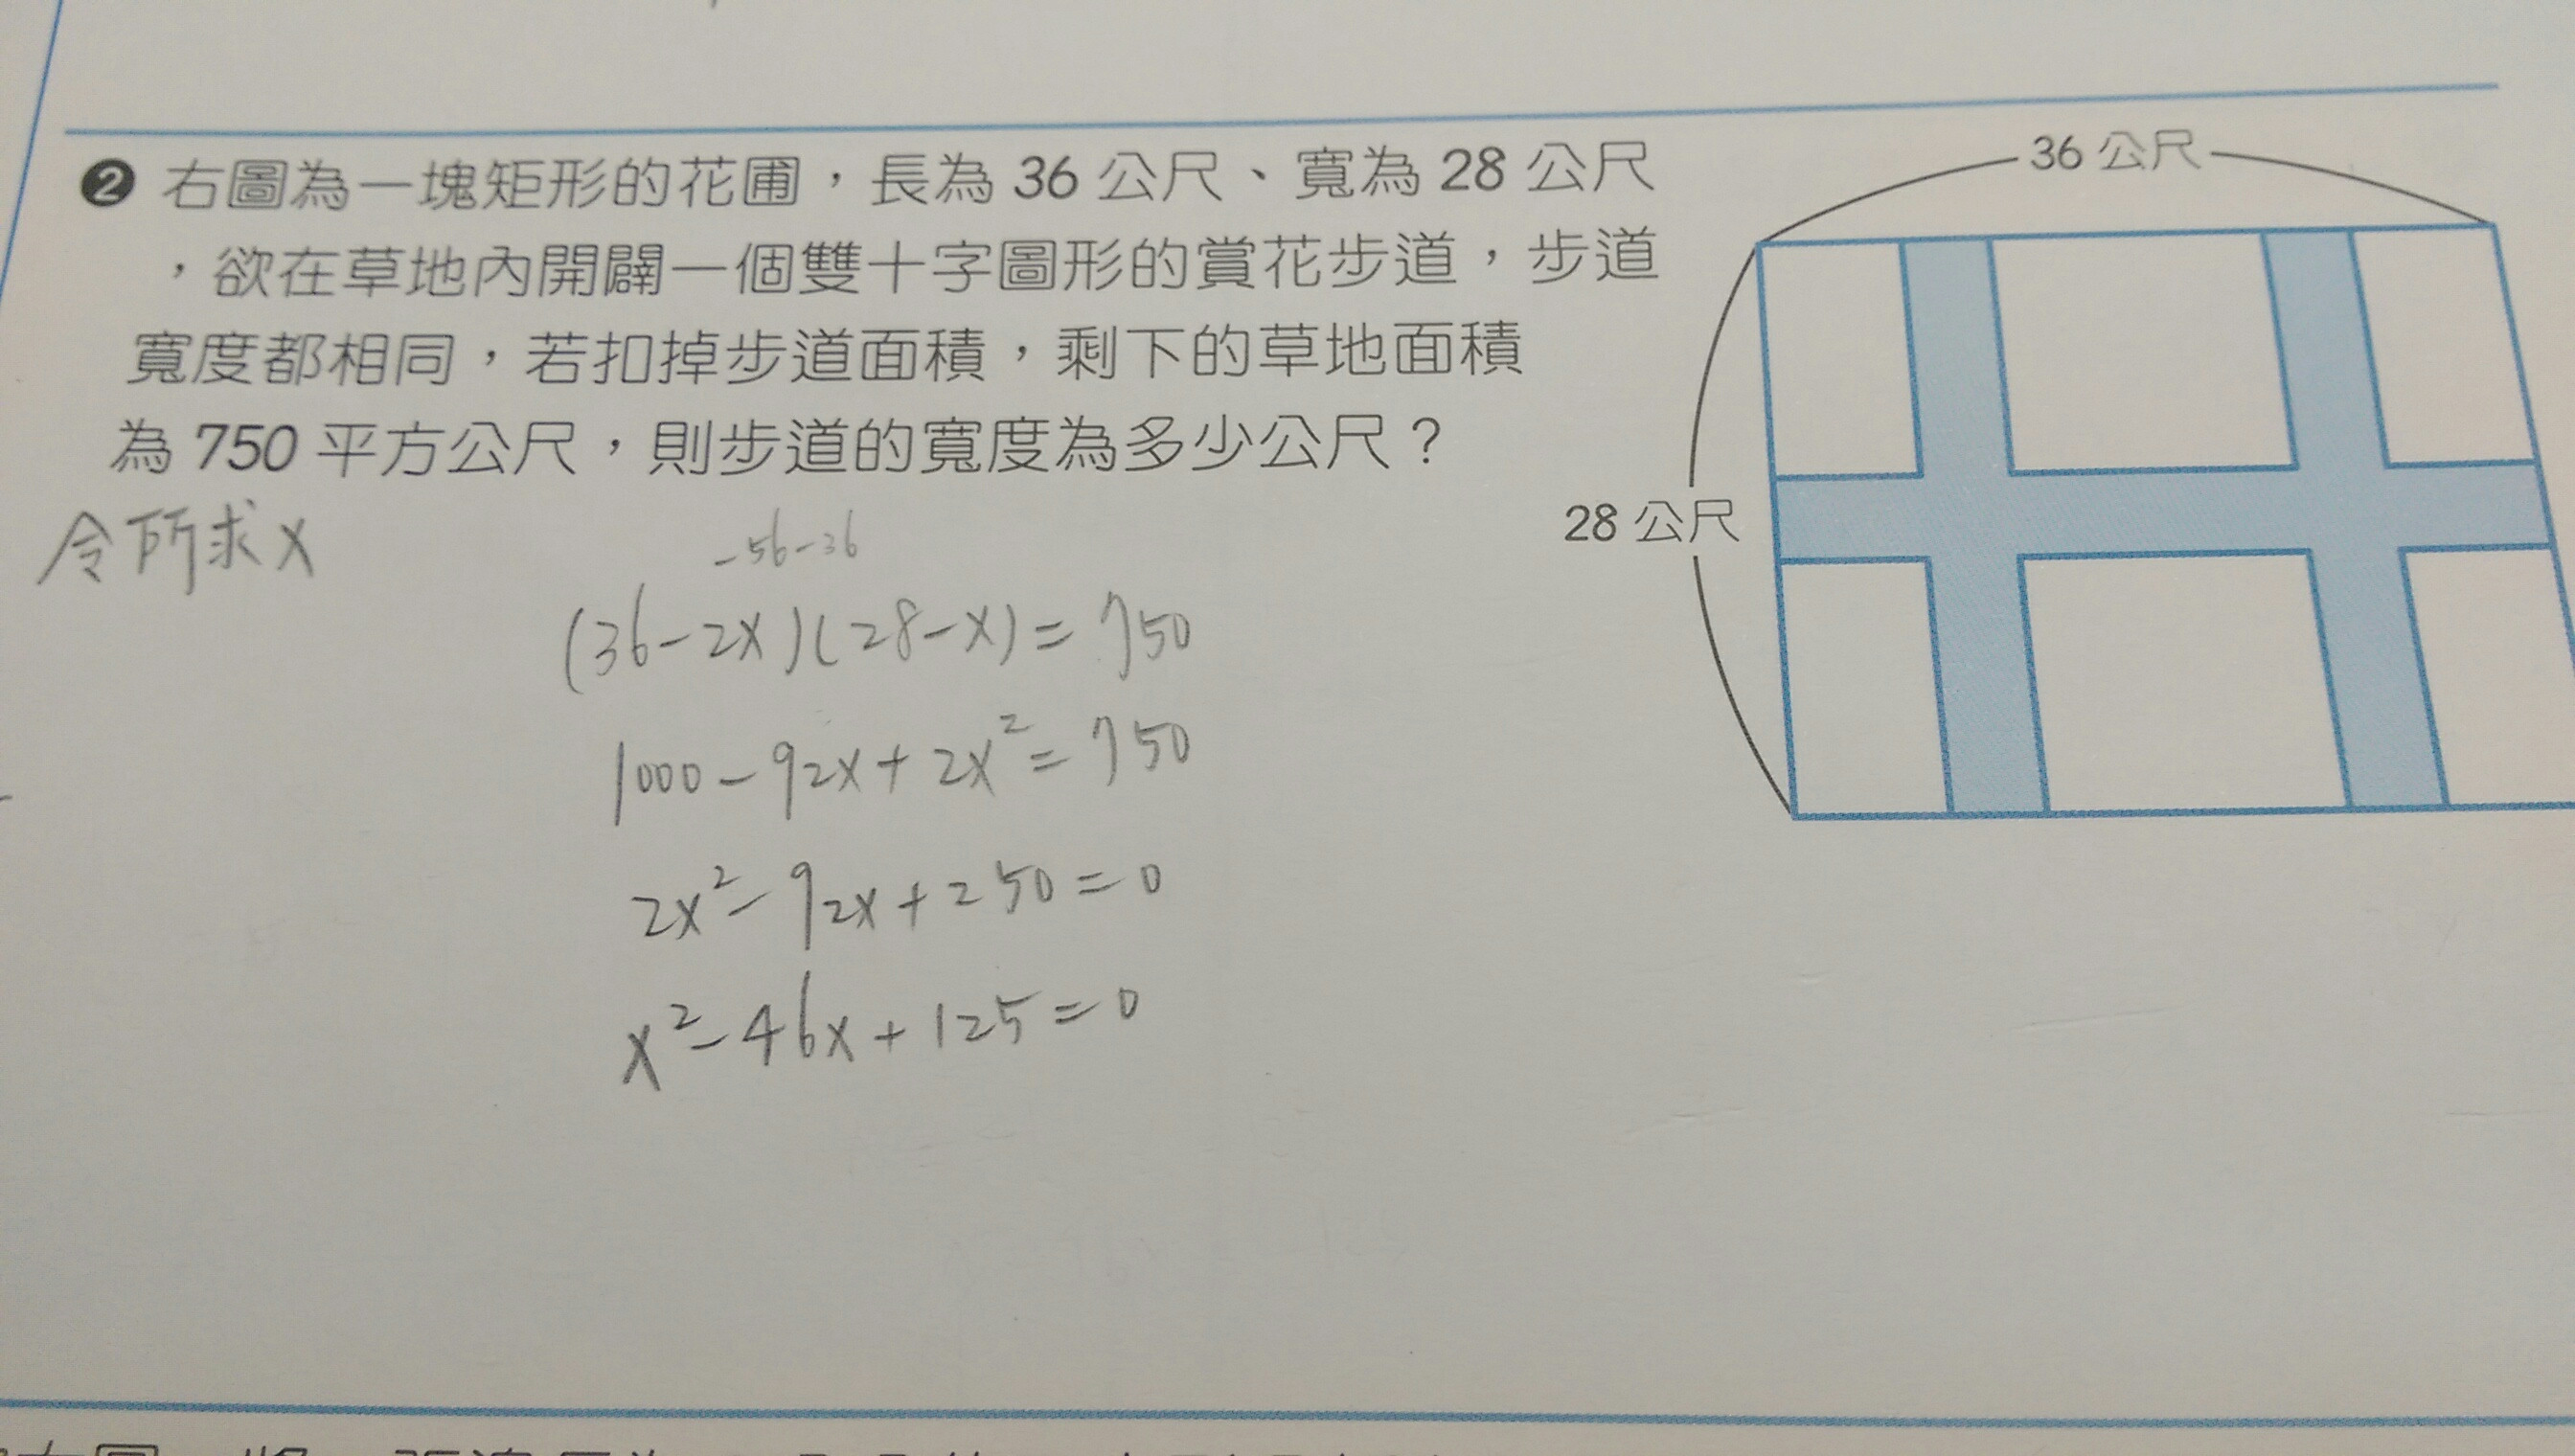 ❷ 右圖為一塊矩形的花圃，長為 36 公尺、寬為 28 公尺
，欲在草地內開闢一個雙十字圖形的賞花步道，步道
寬度都相同，若扣掉步道面積，剩下的草地面積
為 750 平方公尺，則步道的寬度為多少公尺？
36 公尺
28 公尺
令所求x
-56-36
(36-2x)(28-x)=750
1000-92x+2x²=750
2x²-92x+250=0
x²-46x+125=0